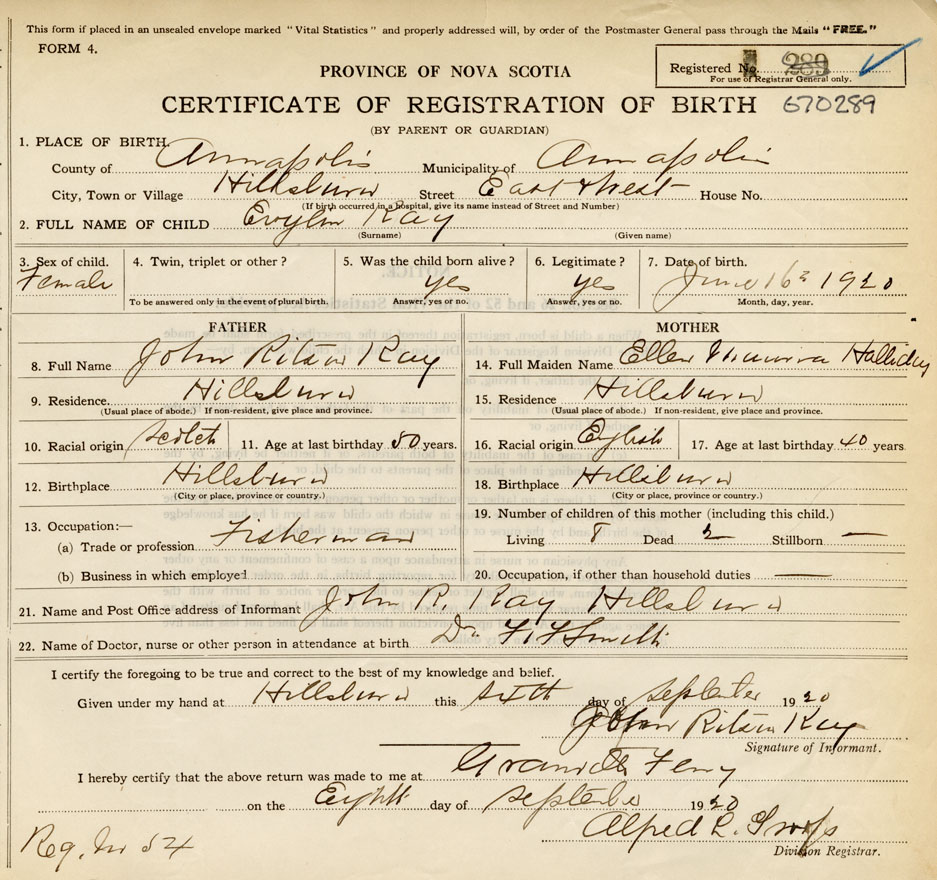 This form if placed in an unsealed envelope marked "Vital Statistics" and properly addressed will, by order of the Postmaster General pass through the Mails "FREE."
FORM 4.
Registered No. 289
For use of Registrar General only.
PROVINCE OF NOVA SCOTIA
CERTIFICATE OF REGISTRATION OF BIRTH 670289
(BY PARENT OR GUARDIAN)
1. PLACE OF BIRTH.
County of Annapolis Municipality of Annapolis
City, Town or Village Hillsburn Street East & West House No.
(If birth occurred in a hospital, give its name instead of Street and Number)
2. FULL NAME OF CHILD Evylin Kay
(Surname) (Given name)
3. Sex of child. Female
4. Twin, triplet or other?
To be answered only in the event of plural birth.
5. Was the child born alive? yes
Answer, yes or no.
6. Legitimate? yes
Answer, yes or no.
7. Date of birth. June 16 1920
Month, day, year.
FATHER
8. Full Name John Ritson Kay
9. Residence. Hillsburn
(Usual place of abode.) If non-resident, give place and province.
10. Racial origin Scotch 11. Age at last birthday 50 years.
12. Birthplace Hillsburn
(City or place, province or country.)
13. Occupation:—
(a) Trade or profession Fisherman
(b) Business in which employed
MOTHER
14. Full Maiden Name Ellen Halliday
15. Residence Hillsburn
(Usual place of abode.) If non-resident, give place and province.
16. Racial origin English 17. Age at last birthday 40 years
18. Birthplace Hillsburn
(City or place, province or country.)
19. Number of children of this mother (including this child.)
Living 8 Dead 2 Stillborn —
20. Occupation, if other than household duties —
21. Name and Post Office address of Informant John R. Kay Hillsburn
22. Name of Doctor, nurse or other person in attendance at birth Dr. Smith
I certify the foregoing to be true and correct to the best of my knowledge and belief.
Given under my hand at Hillsburn this sixth day of September 1920
John Ritson Kay
Signature of Informant.
I hereby certify that the above return was made to me at Granville Ferry
on the Eighth day of September 1920
Alfred L.
Division Registrar.
Reg. No 54